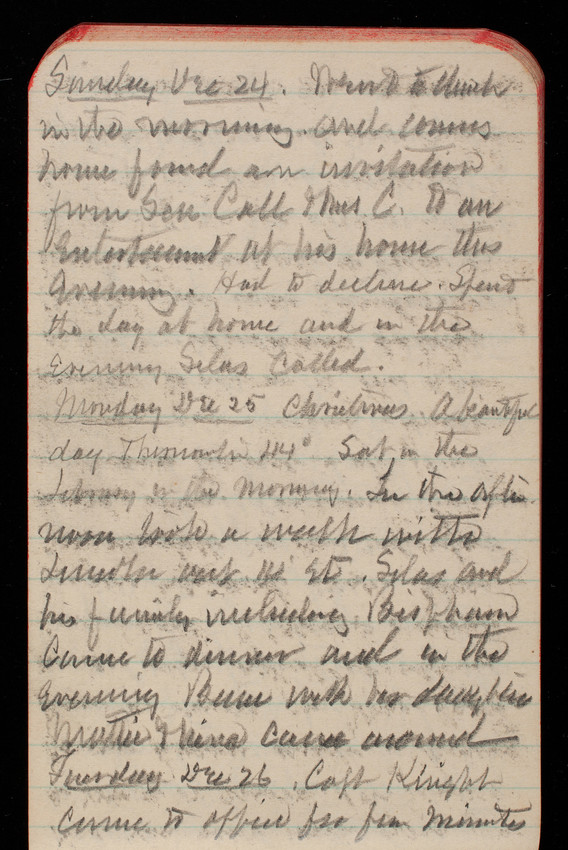 Sunday Dec 24. Went to church
in the morning. and coming
home found an invitation
from Gen Coll & Mrs C. to an
Entertainment at his home this
Evening. Had to decline. Spent
the day at home and in the
Evening Silas Called.
Monday Dec 25 Christmas. A beautiful
day Thermometer 44° Sat in the
Library in the morning. In the after
noon took a walk with
Lincoln out 16 Str. Silas and
his family including Bispham
Came to dinner and in the
Evening with her daughters
Mattie & Nina came around
Tuesday Dec 26. Capt Knight
came to office for few minutes